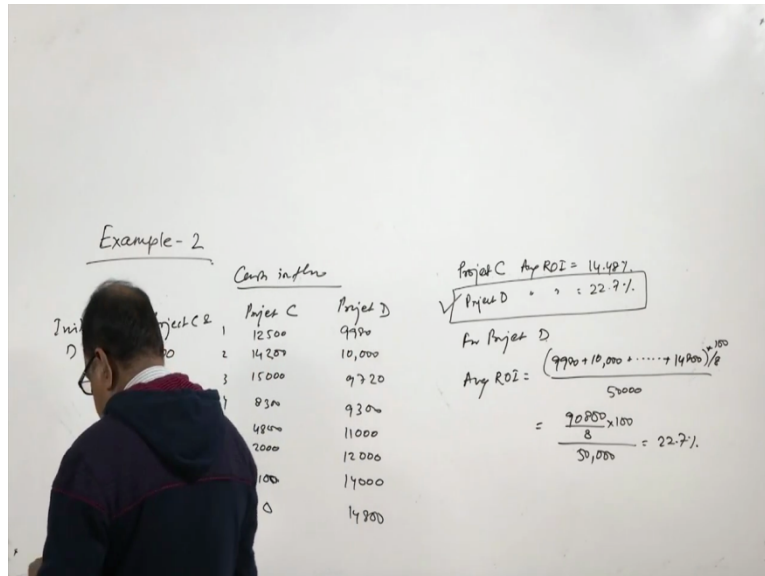 Example - 2
Cash inflow
Project C
Project D
Project C &
D
1 12500 9980
2 14200 10,000
3 15000 9720
8300 9300
4800 11000
2000 12000
100 14000
0 14800
Project C Avg ROI = 14.48%
✓ Project D " " = 22.7%
For Project D
Avg ROI = (9980 + 10,000 + ...... + 14800)/8 × 100
50000
= 90800/8 × 100
50,000
= 22.7%